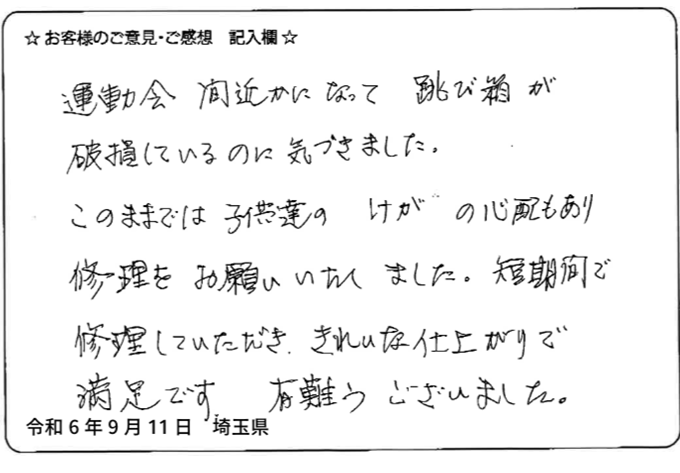 ☆お客様のご意見・ご感想 記入欄☆
運動会 間近かになって 跳び箱が
破損しているのに気づきました。
このままでは子供達の けが の心配もあり
修理をお願いいたしました。短期間で
修理していただき、きれいな仕上がりで
満足です。 有難うございました。
令和6年9月11日 埼玉県